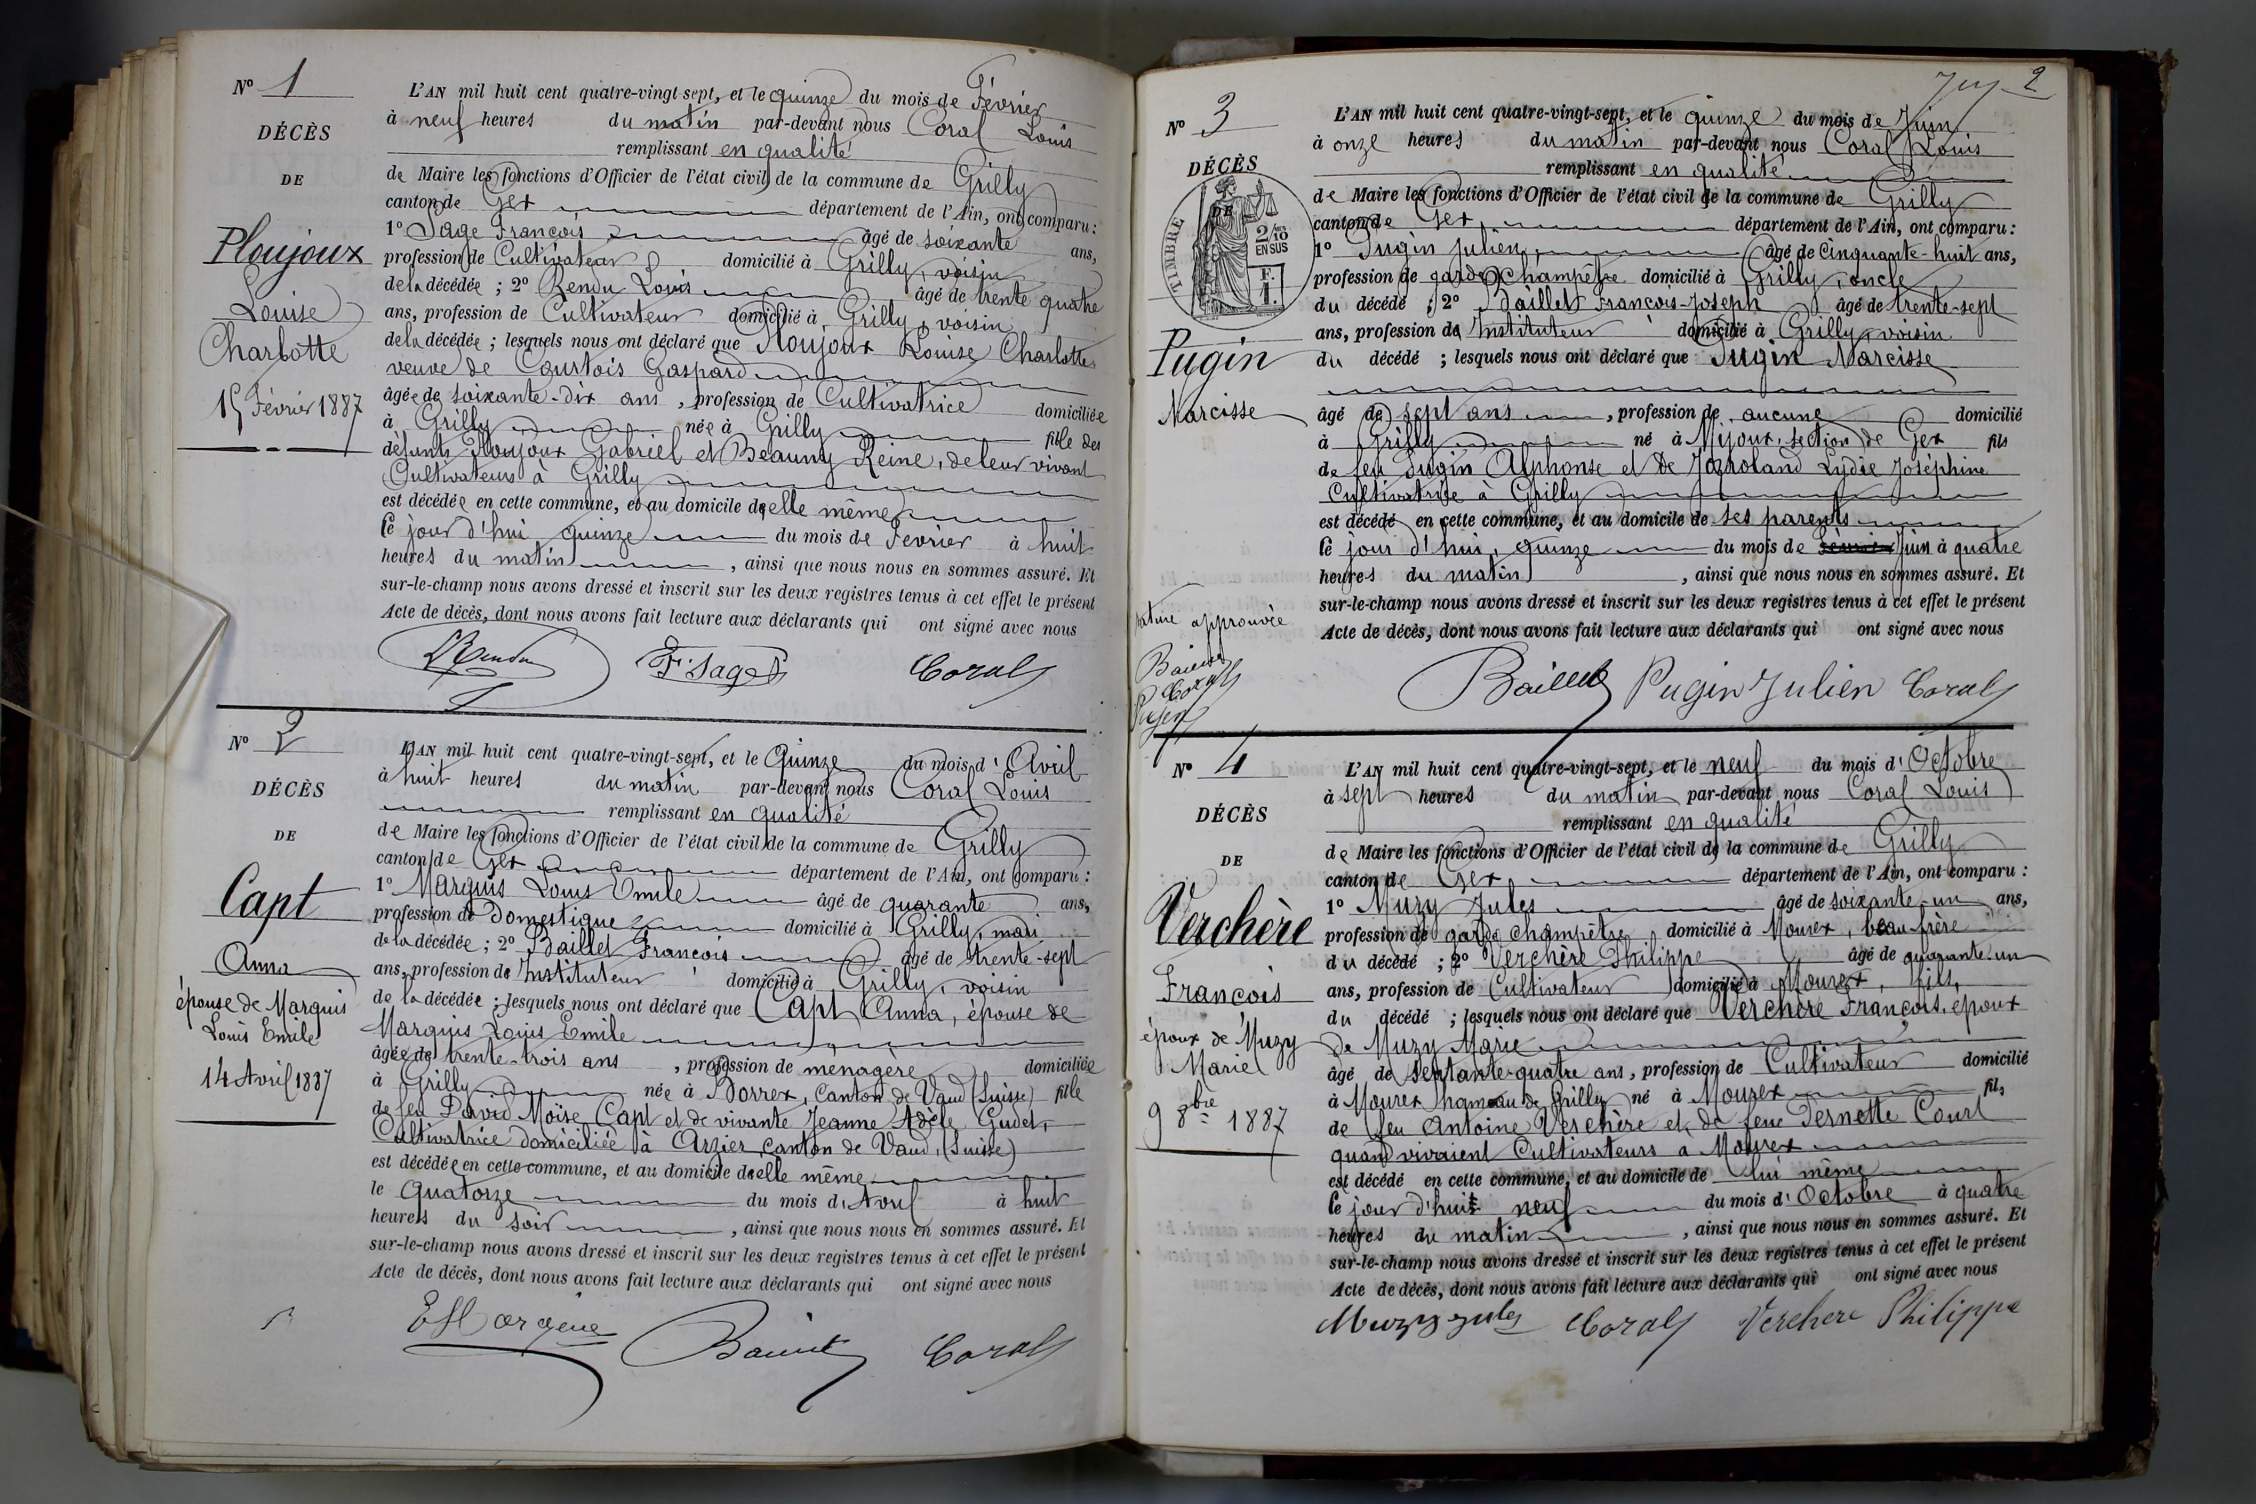 N° 1
DÉCÈS
DE
Ploujoux
Louise
Charlotte
15 Février 1887
L'AN mil huit cent quatre-vingt-sept, et le quinze du mois de Février
à neuf heures du matin par-devant nous Coral Louis
remplissant en qualité
de Maire les fonctions d'Officier de l'état civil de la commune de Grilly
canton de Gex département de l'Ain, ont comparu :
1° Sage François âgé de soixante ans,
profession de Cultivateur domicilié à Grilly, voisin
de la décédée ; 2° Rendu Louis âgé de trente quatre
ans, profession de Cultivateur domicilié à Grilly, voisin
de la décédée ; lesquels nous ont déclaré que Ploujoux Louise Charlotte
veuve de Courtois Gaspard
âgée de soixante-dix ans, profession de Cultivatrice domiciliée
à Grilly née à Grilly fille des
défunts Ploujoux Gabriel et Beauny Reine, de leur vivant
Cultivateurs à Grilly
est décédée en cette commune, et au domicile d'elle même
le jour d'hui quinze du mois de Février à huit
heures du matin, ainsi que nous nous en sommes assuré. Et
sur-le-champ nous avons dressé et inscrit sur les deux registres tenus à cet effet le présent
Acte de décès, dont nous avons fait lecture aux déclarants qui ont signé avec nous
LRendu F. Sage Coral
N° 2
DÉCÈS
DE
Capt
Anna
épouse de Marquis
Louis Emile
14 Avril 1887
L'AN mil huit cent quatre-vingt-sept, et le Quinze du mois d'Avril
à huit heures du matin par-devant nous Coral Louis
remplissant en qualité
de Maire les fonctions d'Officier de l'état civil de la commune de Grilly
canton de Gex département de l'Ain, ont comparu :
1° Marquis Louis Emile âgé de quarante ans,
profession de Domestique domicilié à Grilly, mari
de la décédée ; 2° Baillet François âgé de trente-sept
ans, profession de Instituteur domicilié à Grilly, voisin
de la décédée ; lesquels nous ont déclaré que Capt Anna, épouse de
Marquis Louis Emile
âgée de trente-trois ans, profession de ménagère domiciliée
à Grilly née à Borrex, Canton de Vaud (Suisse) fille
de feu David Moïse Capt et de vivante Jeanne Adèle Gudet,
Cultivatrice domiciliée à Arzier, canton de Vaud, (Suisse)
est décédée en cette commune, et au domicile d'elle même
le Quatorze du mois d'Avril à huit
heures du soir, ainsi que nous nous en sommes assuré. Et
sur-le-champ nous avons dressé et inscrit sur les deux registres tenus à cet effet le présent
Acte de décès, dont nous avons fait lecture aux déclarants qui ont signé avec nous
Baillet Coral
2
N° 3
DÉCÈS
DE
TIMBRE
2/10
EN SUS
F.
1.
Pugin
Narcisse
rature approuvée
Baillet
Coral
Pugin
L'AN mil huit cent quatre-vingt-sept, et le quinze du mois de Juin
à onze heures du matin par-devant nous Coral Louis
remplissant en qualité
de Maire les fonctions d'Officier de l'état civil de la commune de Grilly
canton de Gex département de l'Ain, ont comparu :
1° Pugin Julien, âgé de Cinquante-huit ans,
profession de garde champêtre domicilié à Grilly, oncle
du décédé ; 2° Baillet François-Joseph âgé de trente-sept
ans, profession de Instituteur domicilié à Grilly, voisin
du décédé ; lesquels nous ont déclaré que Pugin Narcisse
âgé de sept ans, profession de aucune domicilié
à Grilly né à Mijoux, section de Gex fils
de feu Pugin Alphonse et de Lydie Joséphine
Cultivatrice à Grilly
est décédé en cette commune, et au domicile de ses parents
le jour d'hui, quinze du mois de Février Juin à quatre
heures du matin, ainsi que nous nous en sommes assuré. Et
sur-le-champ nous avons dressé et inscrit sur les deux registres tenus à cet effet le présent
Acte de décès, dont nous avons fait lecture aux déclarants qui ont signé avec nous
Baillet Pugin Julien Coral
N° 4
DÉCÈS
DE
Verchère
François
époux de Muzy
Marie
9 8bre 1887
L'AN mil huit cent quatre-vingt-sept, et le neuf du mois d'Octobre
à sept heures du matin par-devant nous Coral Louis
remplissant en qualité
de Maire les fonctions d'Officier de l'état civil de la commune de Grilly
canton de Gex département de l'Ain, ont comparu :
1° Muzy Jules âgé de soixante-un ans,
profession de garde champêtre domicilié à Mourex, beau frère
du décédé ; 2° Verchère Philippe âgé de quarante-un
ans, profession de Cultivateur domicilié à Mourex, fils,
du décédé ; lesquels nous ont déclaré que Verchère François, époux
de Muzy Marie
âgé de septante-quatre ans, profession de Cultivateur domicilié
à Mourex hameau de Grilly né à Mourex fils
de feu Antoine Verchère et de feue Pernette Court
quand vivaient Cultivateurs à Mourex
est décédé en cette commune, et au domicile de lui même
le jour d'huit neuf du mois d'Octobre à quatre
heures du matin, ainsi que nous nous en sommes assuré. Et
sur-le-champ nous avons dressé et inscrit sur les deux registres tenus à cet effet le présent
Acte de décès, dont nous avons fait lecture aux déclarants qui ont signé avec nous
Muzy Jules Coral Verchere Philippe